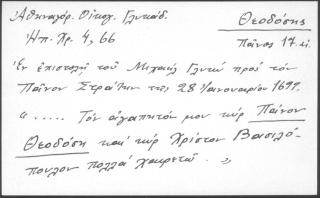 Ἀθηναγόρ. Οἰκογ. Γλυκάδ.
Θεοδόσης
Ἠπ. Χρ. 4, 66
Πᾶνος 17. αἰ.
Ἐν ἐπιστολῇ τοῦ Μιχαὴλ Γλυκῦ πρὸς τὸν
Πᾶνον Στρατ τῆς 28 Ἰανουαρίου 1699.
"..... Τὸν ἀγαπητόν μου κὺρ Πᾶνον
Θεοδόση καὶ κὺρ Χρίστον Βασιλό-
πουλον πολλὰ χαιρετῶ . . "